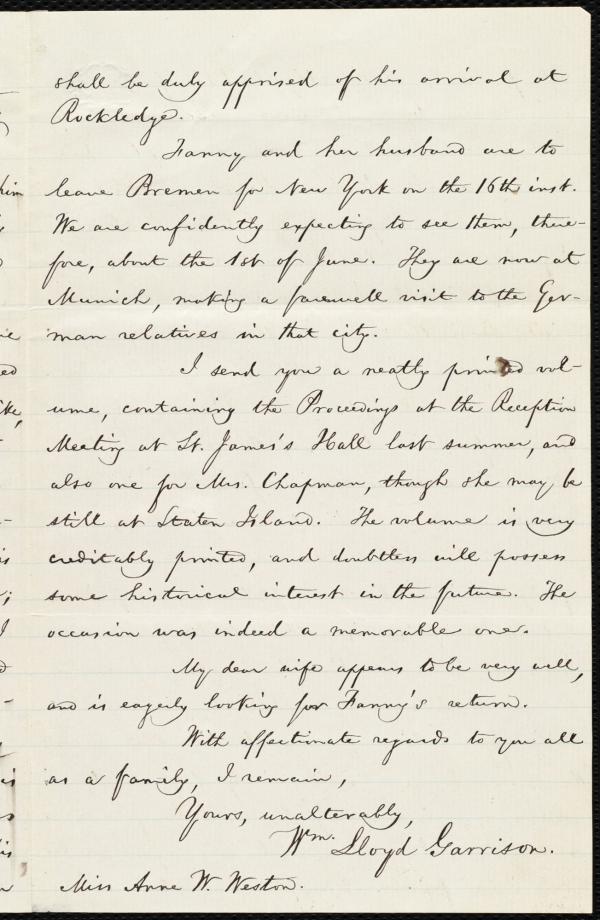 shall be duly apprised of his arrival at
Rockledge.
Fanny and her husband are to
leave Bremen for New York on the 16th inst.
We are confidently expecting to see them, there-
fore, about the 1st of June. They are now at
Munich, making a farewell visit to the Ger-
man relatives in that city.
I send you a neatly printed vol-
ume, containing the Proceedings at the Reception
Meeting at St. James's Hall last summer, and
also one for Mrs. Chapman, though she may be
still at Staten Island. The volume is very
creditably printed, and doubtless will possess
some historical interest in the future. The
occasion was indeed a memorable one.
My dear wife appears to be very well,
and is eagerly looking for Fanny's return.
With affectionate regards to you all
as a family, I remain,
Yours, unalterably,
Wm. Lloyd Garrison.
Miss Anne W. Weston.